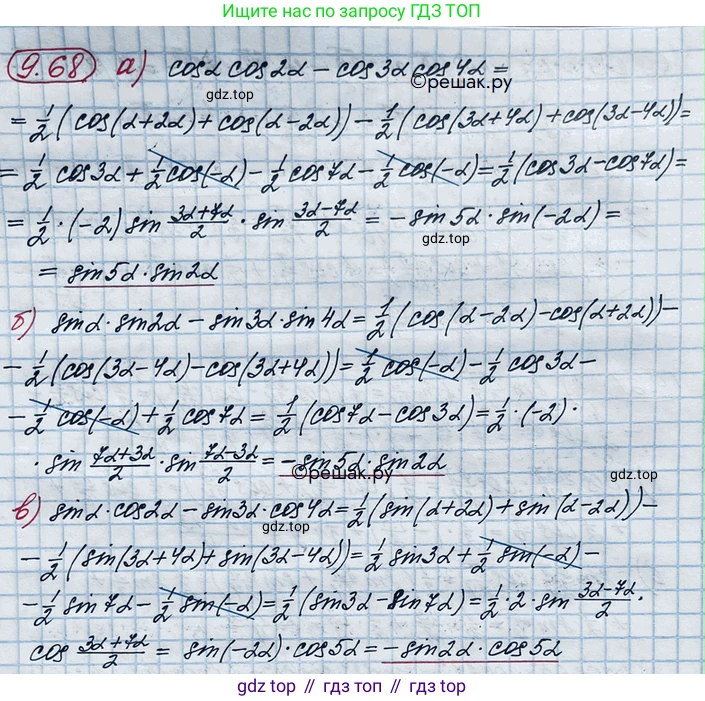 Ищите нас по запросу ГДЗ ТОП
9.68 а) cosα cos2α − cos3α cos4α =
©решак.ру
gdz.top
= 1/2 (cos(α+2α) + cos(α−2α)) − 1/2 (cos(3α+4α) + cos(3α−4α)) =
= 1/2 cos3α + 1/2 cos(−α) − 1/2 cos7α − 1/2 cos(−α) = 1/2 (cos3α − cos7α) =
= 1/2 · (−2) sin (3α+7α)/2 · sin (3α−7α)/2 = − sin5α · sin(−2α) =
gdz.top
= sin5α · sin2α
б) sinα · sin2α − sin3α · sin4α = 1/2 (cos(α−2α) − cos(α+2α)) −
− 1/2 (cos(3α−4α) − cos(3α+4α)) = 1/2 cos(−α) − 1/2 cos3α −
− 1/2 cos(−α) + 1/2 cos7α = 1/2 (cos7α − cos3α) = 1/2 · (−2) ·
· sin (7α+3α)/2 · sin (7α−3α)/2 = − sin5α · sin2α
©решак.ру
gdz.top
в) sinα · cos2α − sin3α · cos4α = 1/2 (sin(α+2α) + sin(α−2α)) −
gdz.top
− 1/2 (sin(3α+4α) + sin(3α−4α)) = 1/2 sin3α + 1/2 sin(−α) −
− 1/2 sin7α − 1/2 sin(−α) = 1/2 (sin3α − sin7α) = 1/2 · 2 · sin (3α−7α)/2 ·
cos (3α+7α)/2 = sin(−2α) · cos5α = − sin2α · cos5α
gdz top // гдз топ // gdz.top